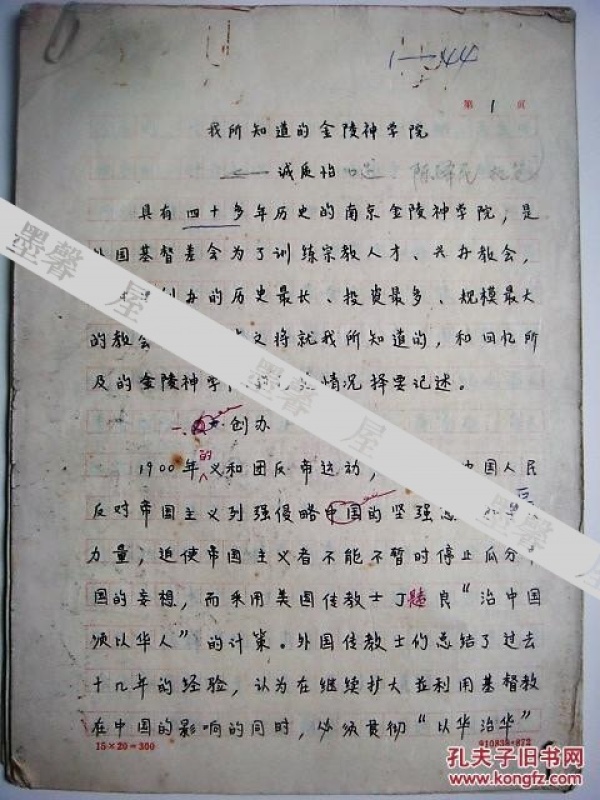 1—44
第 1 页
我所知道的金陵神学院
—— 诚质怡 口述 陈泽民
具有四十多年历史的南京金陵神学院，是
外国基督差会为了训练宗教人才、兴办教会，
创办的历史最长、投资最多、规模最大
的教会 将就我所知道的，和回忆所
及的金陵神学 情况择要记述。
一、创办
1900年的义和团反帝运动， 中国人民
反对帝国主义列强侵略中国的坚强意 巨
力量；迫使帝国主义者不能不暂时停止瓜分中
国的妄想，而采用美国传教士丁韪良“治中国
须以华人”的计策。外国传教士们总结了过去
十几年的经验，认为在继续扩大並利用基督教
在中国的影响的同时，必须贯彻“以华治华”
15×20=300
墨馨屋
墨馨屋
孔夫子旧书网
www.kongfz.com